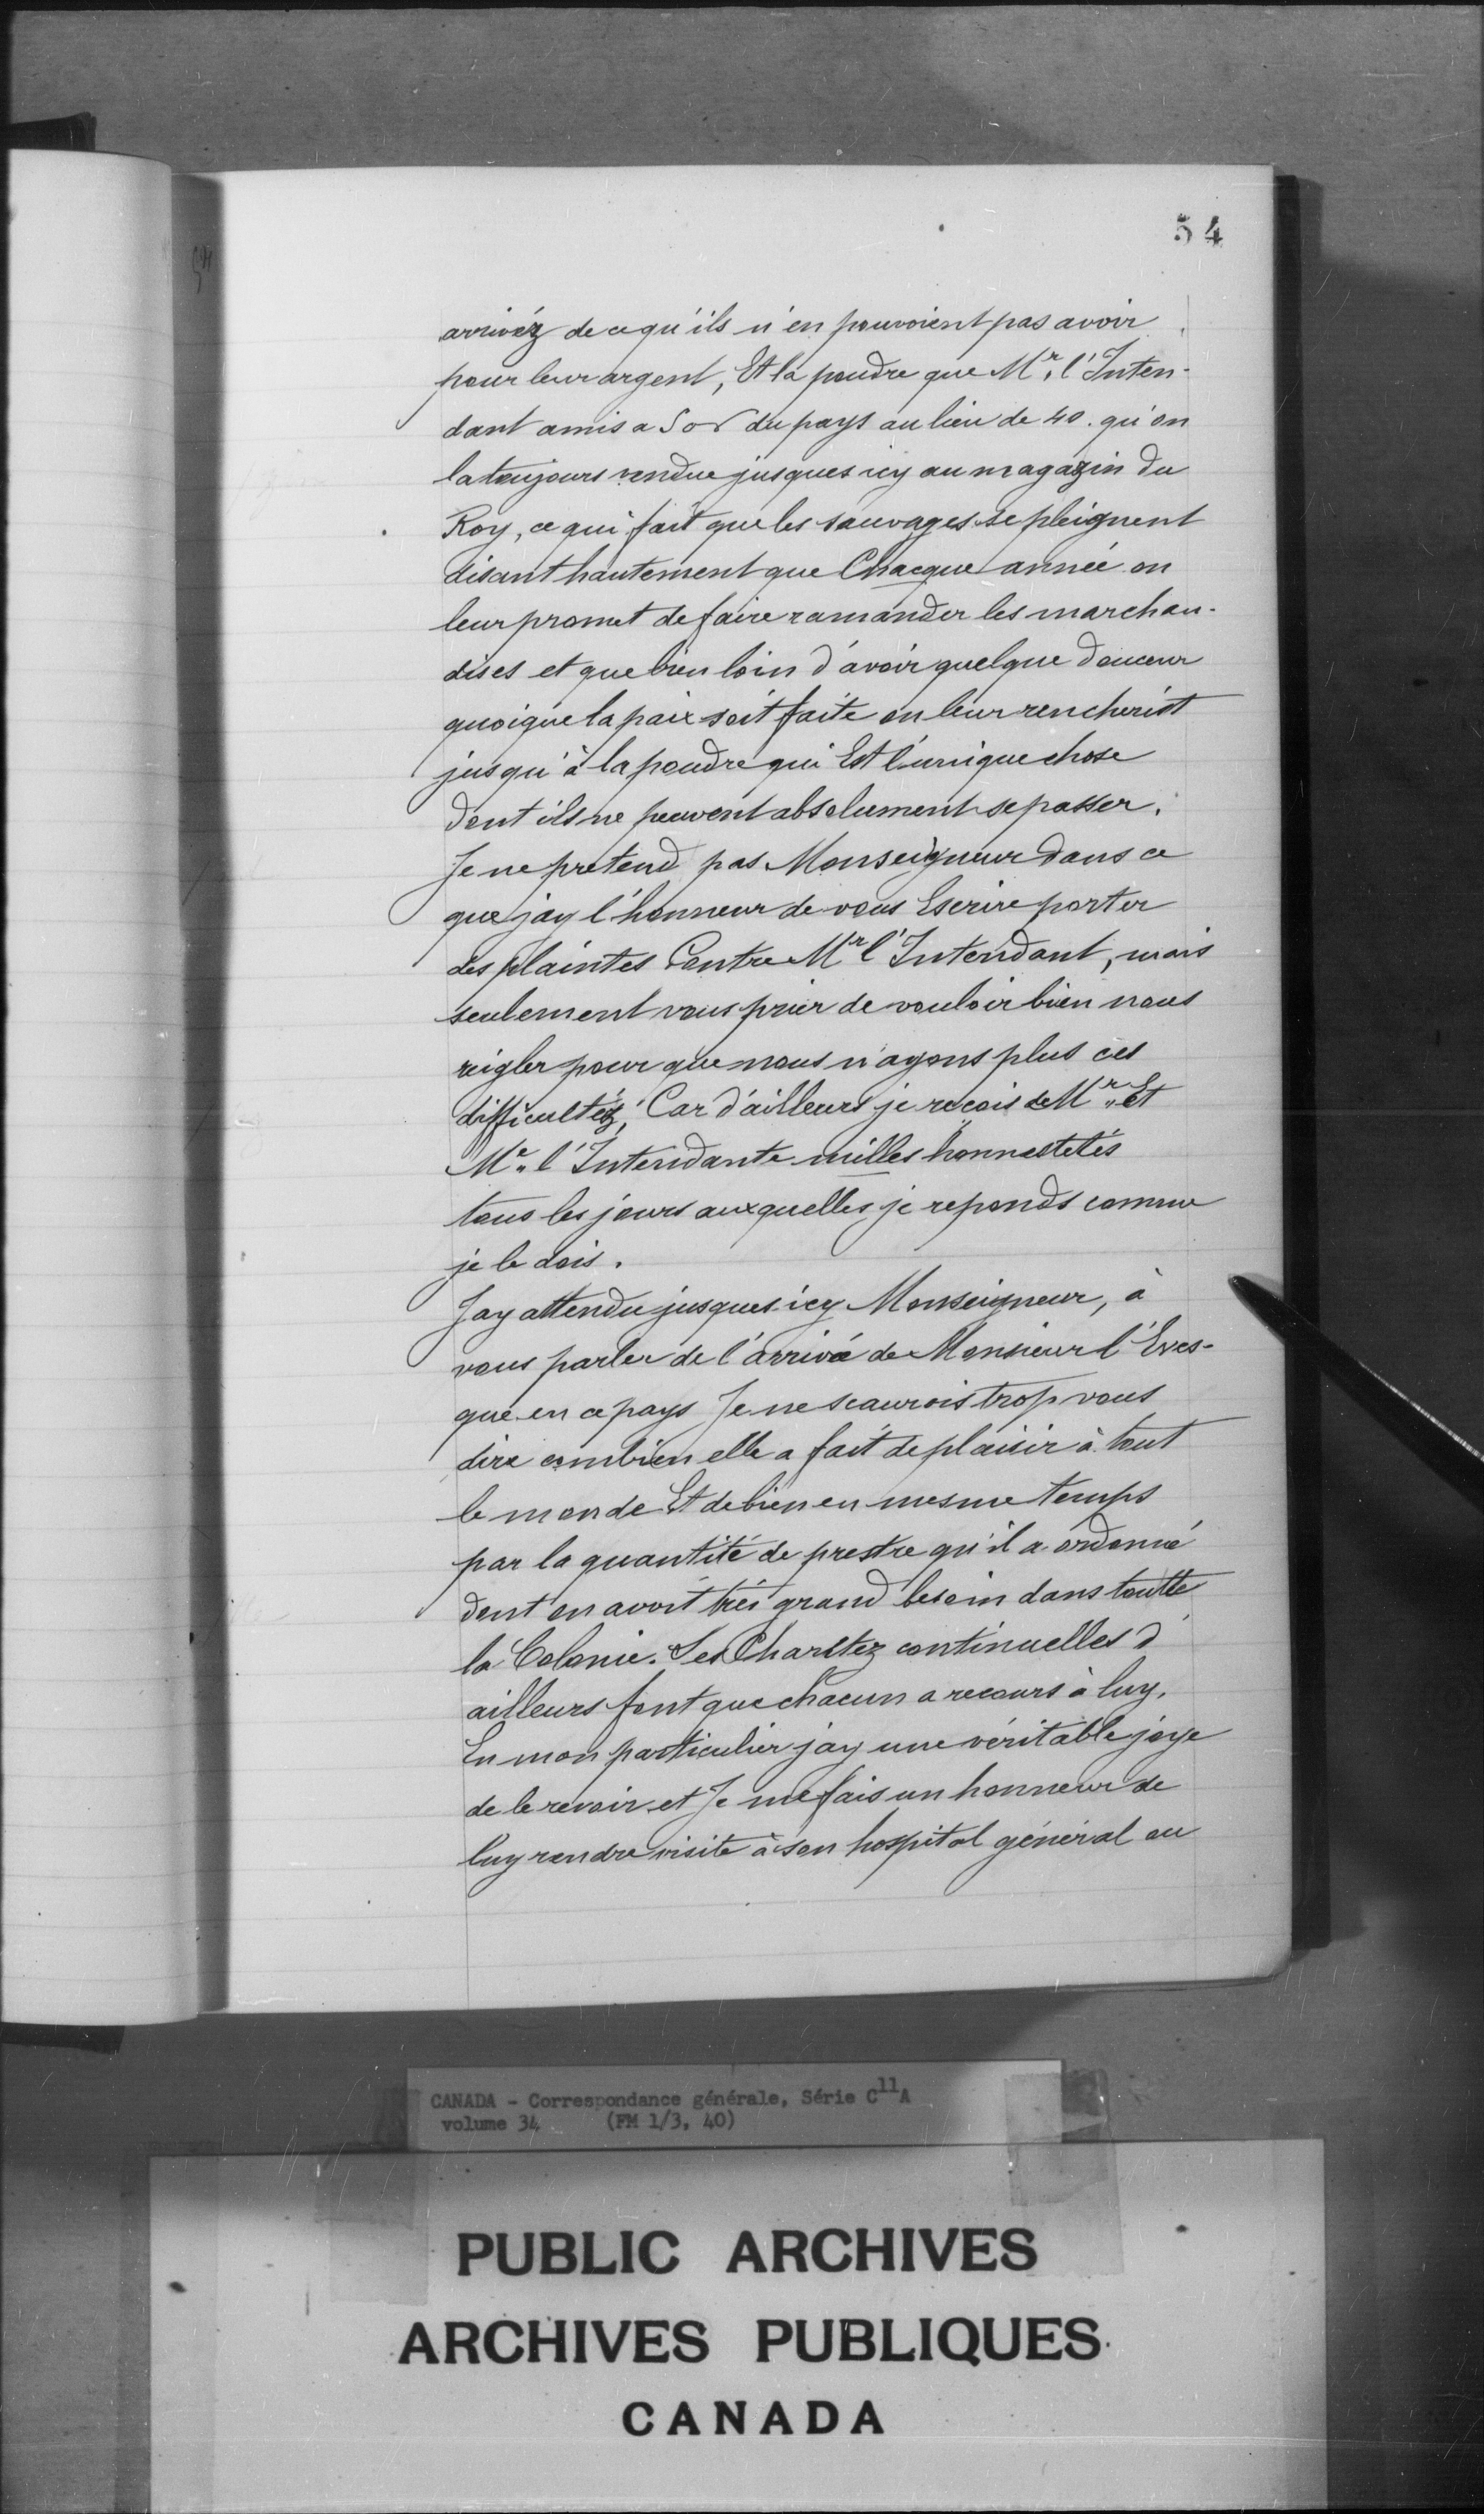 54
arrivéz de ce qu'ils n'en pouvoient pas avoir
pour leur argent, Et la poudre que Mr. l'Inten-
dant a mis a 50s du pays au lieu de 40. qu'on
la toujours vendue jusques icy au magazin du
Roy, ce qui fait que les sauvages se pleignent
disant hautement que Chacque année on
leur promet de faire ramander les marchan-
dises et que bien loin d'avoir quelque douceur
quoique la paix soit faite on leur rencherist
jusqu'à la poudre qui Est l'unique chose
dont ils ne peuvent absolument se passer.
Je ne pretend pas Monseigneur dans ce
que j'ay l'honneur de vous Escrire porter
des plaintes Contre Mr l'Intendant, mais
seulement vous prier de vouloir bien nous
reigler pour que nous n'ayons plus ces
difficultéz, Car d'ailleurs je reçois de Mr. Et
Me. l'Intendante milles honnestetés
tous les jours auxquelles je reponds comme
je le dois.
Jay attendu jusques icy Monseigneur, à
vous parler de l'arrivé de Monsieur l'Eves-
que en ce pays Je ne scaurois trop vous
dire combien elle a fait de plaisir à tout
le monde Et de bien en mesme temps
par la quantité de prestre qu'il a ordonné
dont on avoit très grand besoin dans toutte
la Colonie. Ses Charitez continuelles d'
ailleurs font que chacun a recours à luy.
En mon particulier j'ay une véritable joye
de le revoir et Je me fais un honneur de
luy rendre visite à son hospital général ou
CANADA - Correspondance générale, Série C11A
volume 34 (FM 1/3, 40)
PUBLIC ARCHIVES
ARCHIVES PUBLIQUES
CANADA